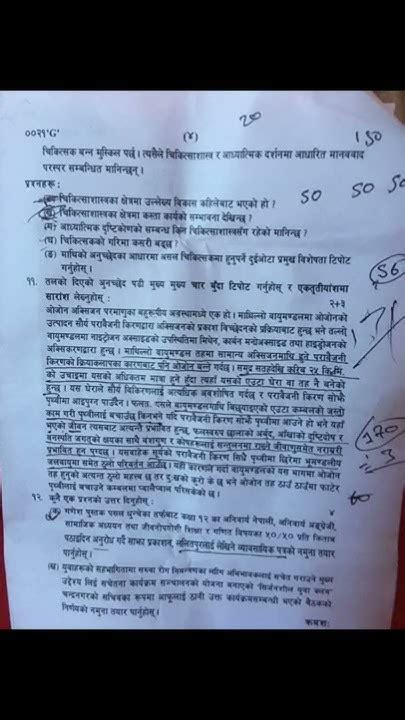 20
००२१'G'
(४)
150
चिकित्सक बन्न मुस्किल पर्छ। त्यसैले चिकित्साशास्त्र र आध्यात्मिक दर्शनमा आधारित मानववाद
परस्पर सम्बन्धित मानिन्छन्।
प्रश्नहरू :
50 50 50
(क) चिकित्साशास्त्रका क्षेत्रमा उल्लेख्य विकास कहिलेबाट भएको हो ?
(ख) चिकित्साशास्त्रका क्षेत्रमा कस्ता कार्यको सम्भावना देखिन्छ ?
(ग) आध्यात्मिक दृष्टिकोणको सम्बन्ध किन चिकित्साशास्त्रसँग रहेको मानिन्छ ?
(घ) चिकित्सकको गरिमा कसरी बढ्छ ?
(ङ) माथिको अनुच्छेदका आधारमा असल चिकित्सकमा हुनुपर्ने दुईओटा प्रमुख विशेषता टिपोट
गर्नुहोस्।
56
११. तलको दिएको अनुच्छेद पढी मुख्य मुख्य चार बुँदा टिपोट गर्नुहोस् र एकतृतीयांशमा
सारांश लेख्नुहोस् :
२+३
ओजोन अक्सिजन परमाणुका बहुरूपीय अवस्थामध्ये एक हो। माथिल्लो वायुमण्डलमा ओजोनको
उत्पादन सौर्य परावैजनी किरणद्वारा अक्सिजनको प्रकाश विच्छेदनको प्रक्रियाबाट हुन्छ भने तल्लो
वायुमण्डलमा नाइट्रोजन अक्साइडको उपस्थितिमा मिथेन, कार्बन मनोअक्साइड तथा हाइड्रोजनको
अक्सिकरणद्वारा हुन्छ। माथिल्लो वायुमण्डल तहमा सामान्य अक्सिजनमाथि हुने परावैजनी
किरणको क्रियाकलापका कारणबाट पनि ओजोन बन्ने गर्दछ। समुद्र सतहदेखि करिब २५ कि.मि.
को उचाइमा यसको अधिकतम मात्रा हुने हुँदा त्यहाँ यसको एउटा घेरा वा तह नै बनेको
हुन्छ। यस घेराले सौर्य विकिरणलाई अत्यधिक अवशोषित गर्दछ र परावैजनी किरण सोझै
पृथ्वीमा आइपुग्न पाउँदैन। फलतः यसले वायुमण्डलमाथि बिछ्याइएको एउटा कम्बलको जस्तो
काम गरी पृथ्वीलाई बचाउँछ किनभने यदि परावैजनी किरण सोझै पृथ्वीमा आउने हो भने यहाँ
भएको जीवन त्यसबाट अत्यन्तै प्रभावित हुन्छ, फलस्वरूप छालाको अर्बुद, आँखाको दृष्टिदोष र
वनस्पति जगत्को क्षयका साथै वंशाणु र कोषहरूलाई सन्तुलनमा राख्ने जीवाणुसमेत नराम्ररी
प्रभावित हुन पुग्दछ। यसबाहेक सूर्यको परावैजनी किरण सिधै पृथ्वीमा छिरेमा भूमण्डलीय
जलवायुमा समेत ठुलो परिवर्तन आउँछ। यही कारणले गर्दा वायुमण्डलको यस भागमा ओजोन
तह हुनुको अत्यन्त ठुलो महत्त्व छ तर दुःखको कुरो के छ भने ओजोन तह ठाउँ ठाउँमा फाटेर
पृथ्वीलाई बचाउने कम्बलमा प्वालैप्वाल परिसकेको छ।
170
3
१२. कुनै एक प्रश्नको उत्तर दिनुहोस् :
४
60
(क) गणेश पुस्तक पसल धुन्चेका तर्फबाट कक्षा १२ का अनिवार्य नेपाली, अनिवार्य अङ्ग्रेजी,
सामाजिक अध्ययन तथा जीवनोपयोगी शिक्षा र गणित विषयका ५०/५० प्रति किताब
पठाइदिन अनुरोध गर्दै साझा प्रकाशन, ललितपुरलाई लेखिने व्यावसायिक पत्रको नमुना तयार
पार्नुहोस्।
(ख) युवाहरूको सहभागितामा सरुवा रोग नियन्त्रणका लागि अभिभावकलाई सचेत गराउने मुख्य
उद्देश्य लिई सचेतना कार्यक्रम सञ्चालनको योजना बनाएको 'सिर्जनशील युवा क्लब'
चन्द्रनगरको सचिवका रूपमा आफूलाई ठानी उक्त कार्यक्रमसम्बन्धी भएको बैठकको
निर्णयको नमुना तयार पार्नुहोस्।
क्रमशः